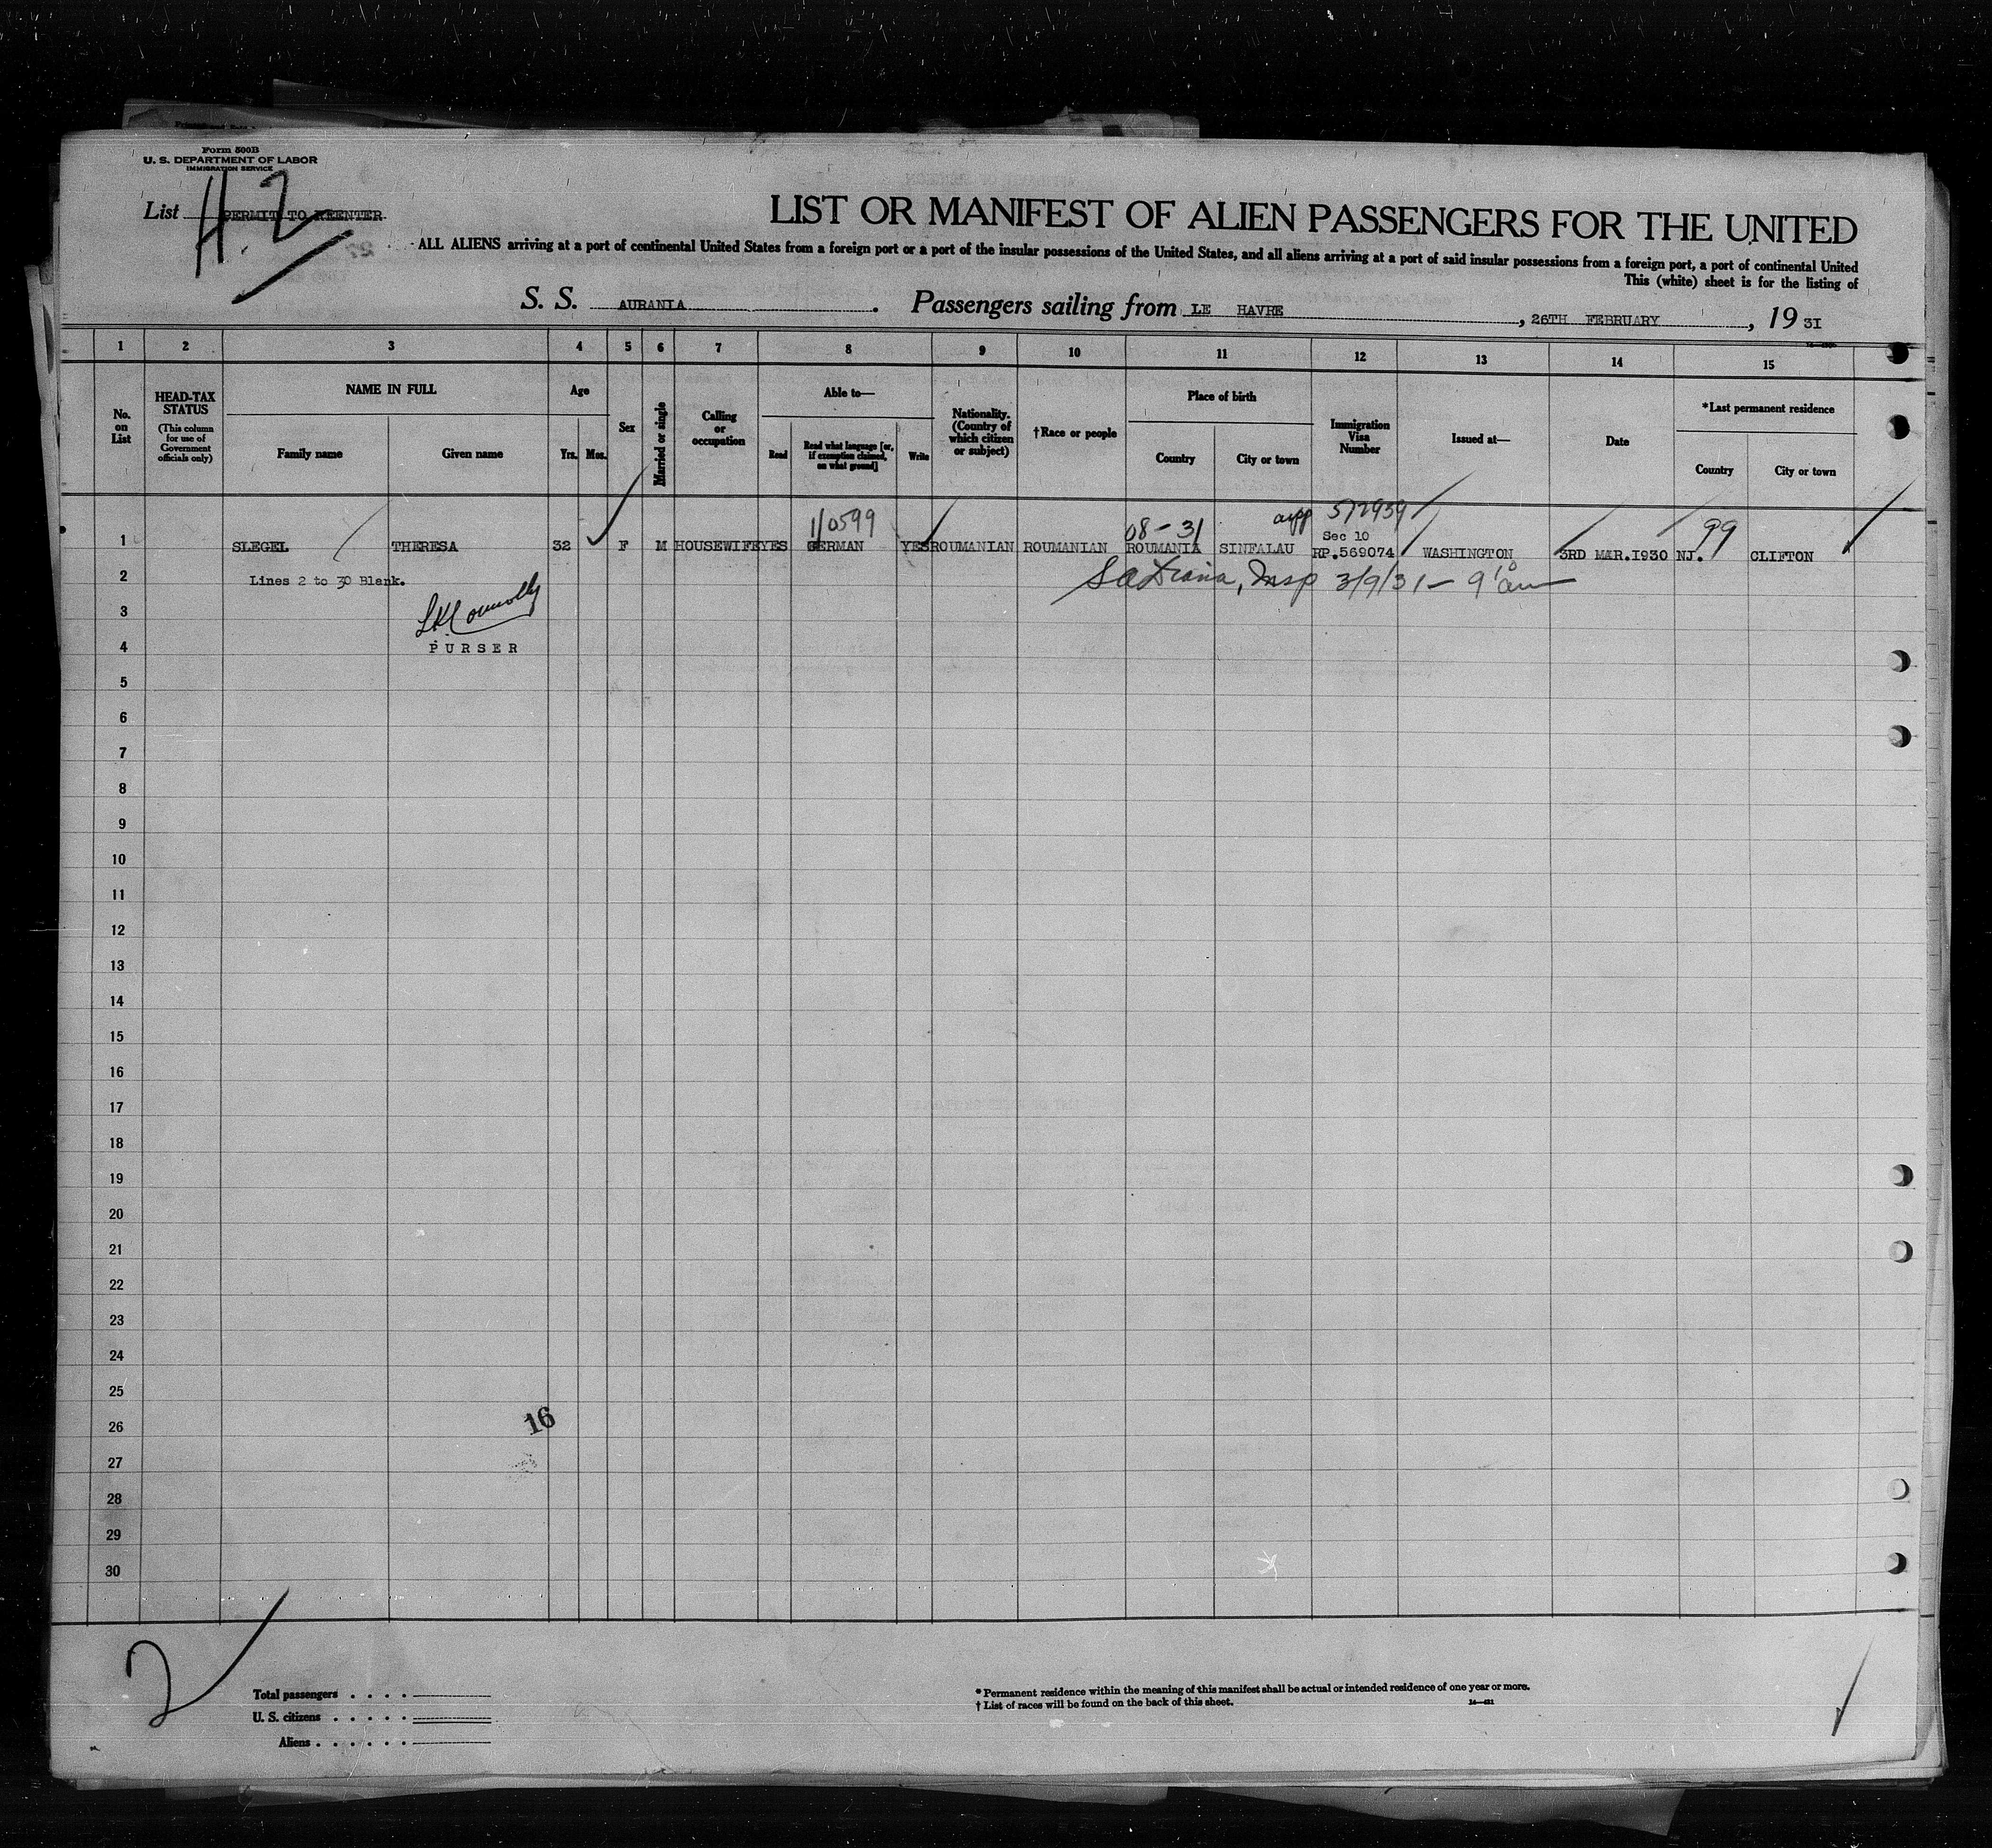 Form 500B
U. S. DEPARTMENT OF LABOR
IMMIGRATION SERVICE
H.2
List PERMIT TO REENTER
LIST OR MANIFEST OF ALIEN PASSENGERS FOR THE UNITED
ALL ALIENS arriving at a port of continental United States from a foreign port or a port of the insular possessions of the United States, and all aliens arriving at a port of said insular possessions from a foreign port, a port of continental United
This (white) sheet is for the listing of
S. S. AURANIA. Passengers sailing from LE HAVRE, 26TH FEBRUARY, 19 31
1 2 3 4 5 6 7 8 9 10 11 12 13 14 15
No. on List
HEAD-TAX STATUS
(This column for use of Government officials only)
NAME IN FULL
Family name Given name
Age
Yrs. Mos.
Sex
Married or single
Calling or occupation
Able to—
Read Read what language [or, if exemption claimed, on what ground] Write
Nationality. (Country of which citizen or subject)
†Race or people
Place of birth
Country City or town
Immigration Visa Number
Issued at—
Date
*Last permanent residence
Country City or town
1/0599 08-31 512939 99
Sec 10
1 SLEGEL THERESA 32 F M HOUSEWIFE YES GERMAN YES ROUMANIAN ROUMANIAN ROUMANIA SINFALAU RP.569074 WASHINGTON 3RD MAR.1930 NJ. CLIFTON
2 Lines 2 to 30 Blank. Insp 3/9/31 - 9
3 Connolly
4 PURSER
5
6
7
8
9
10
11
12
13
14
15
16
17
18
19
20
21
22
23
24
25
26 16
27
28
29
30
2
Total passengers . . . .
U. S. citizens . . . . .
Aliens . . . . . .
* Permanent residence within the meaning of this manifest shall be actual or intended residence of one year or more.
† List of races will be found on the back of this sheet.